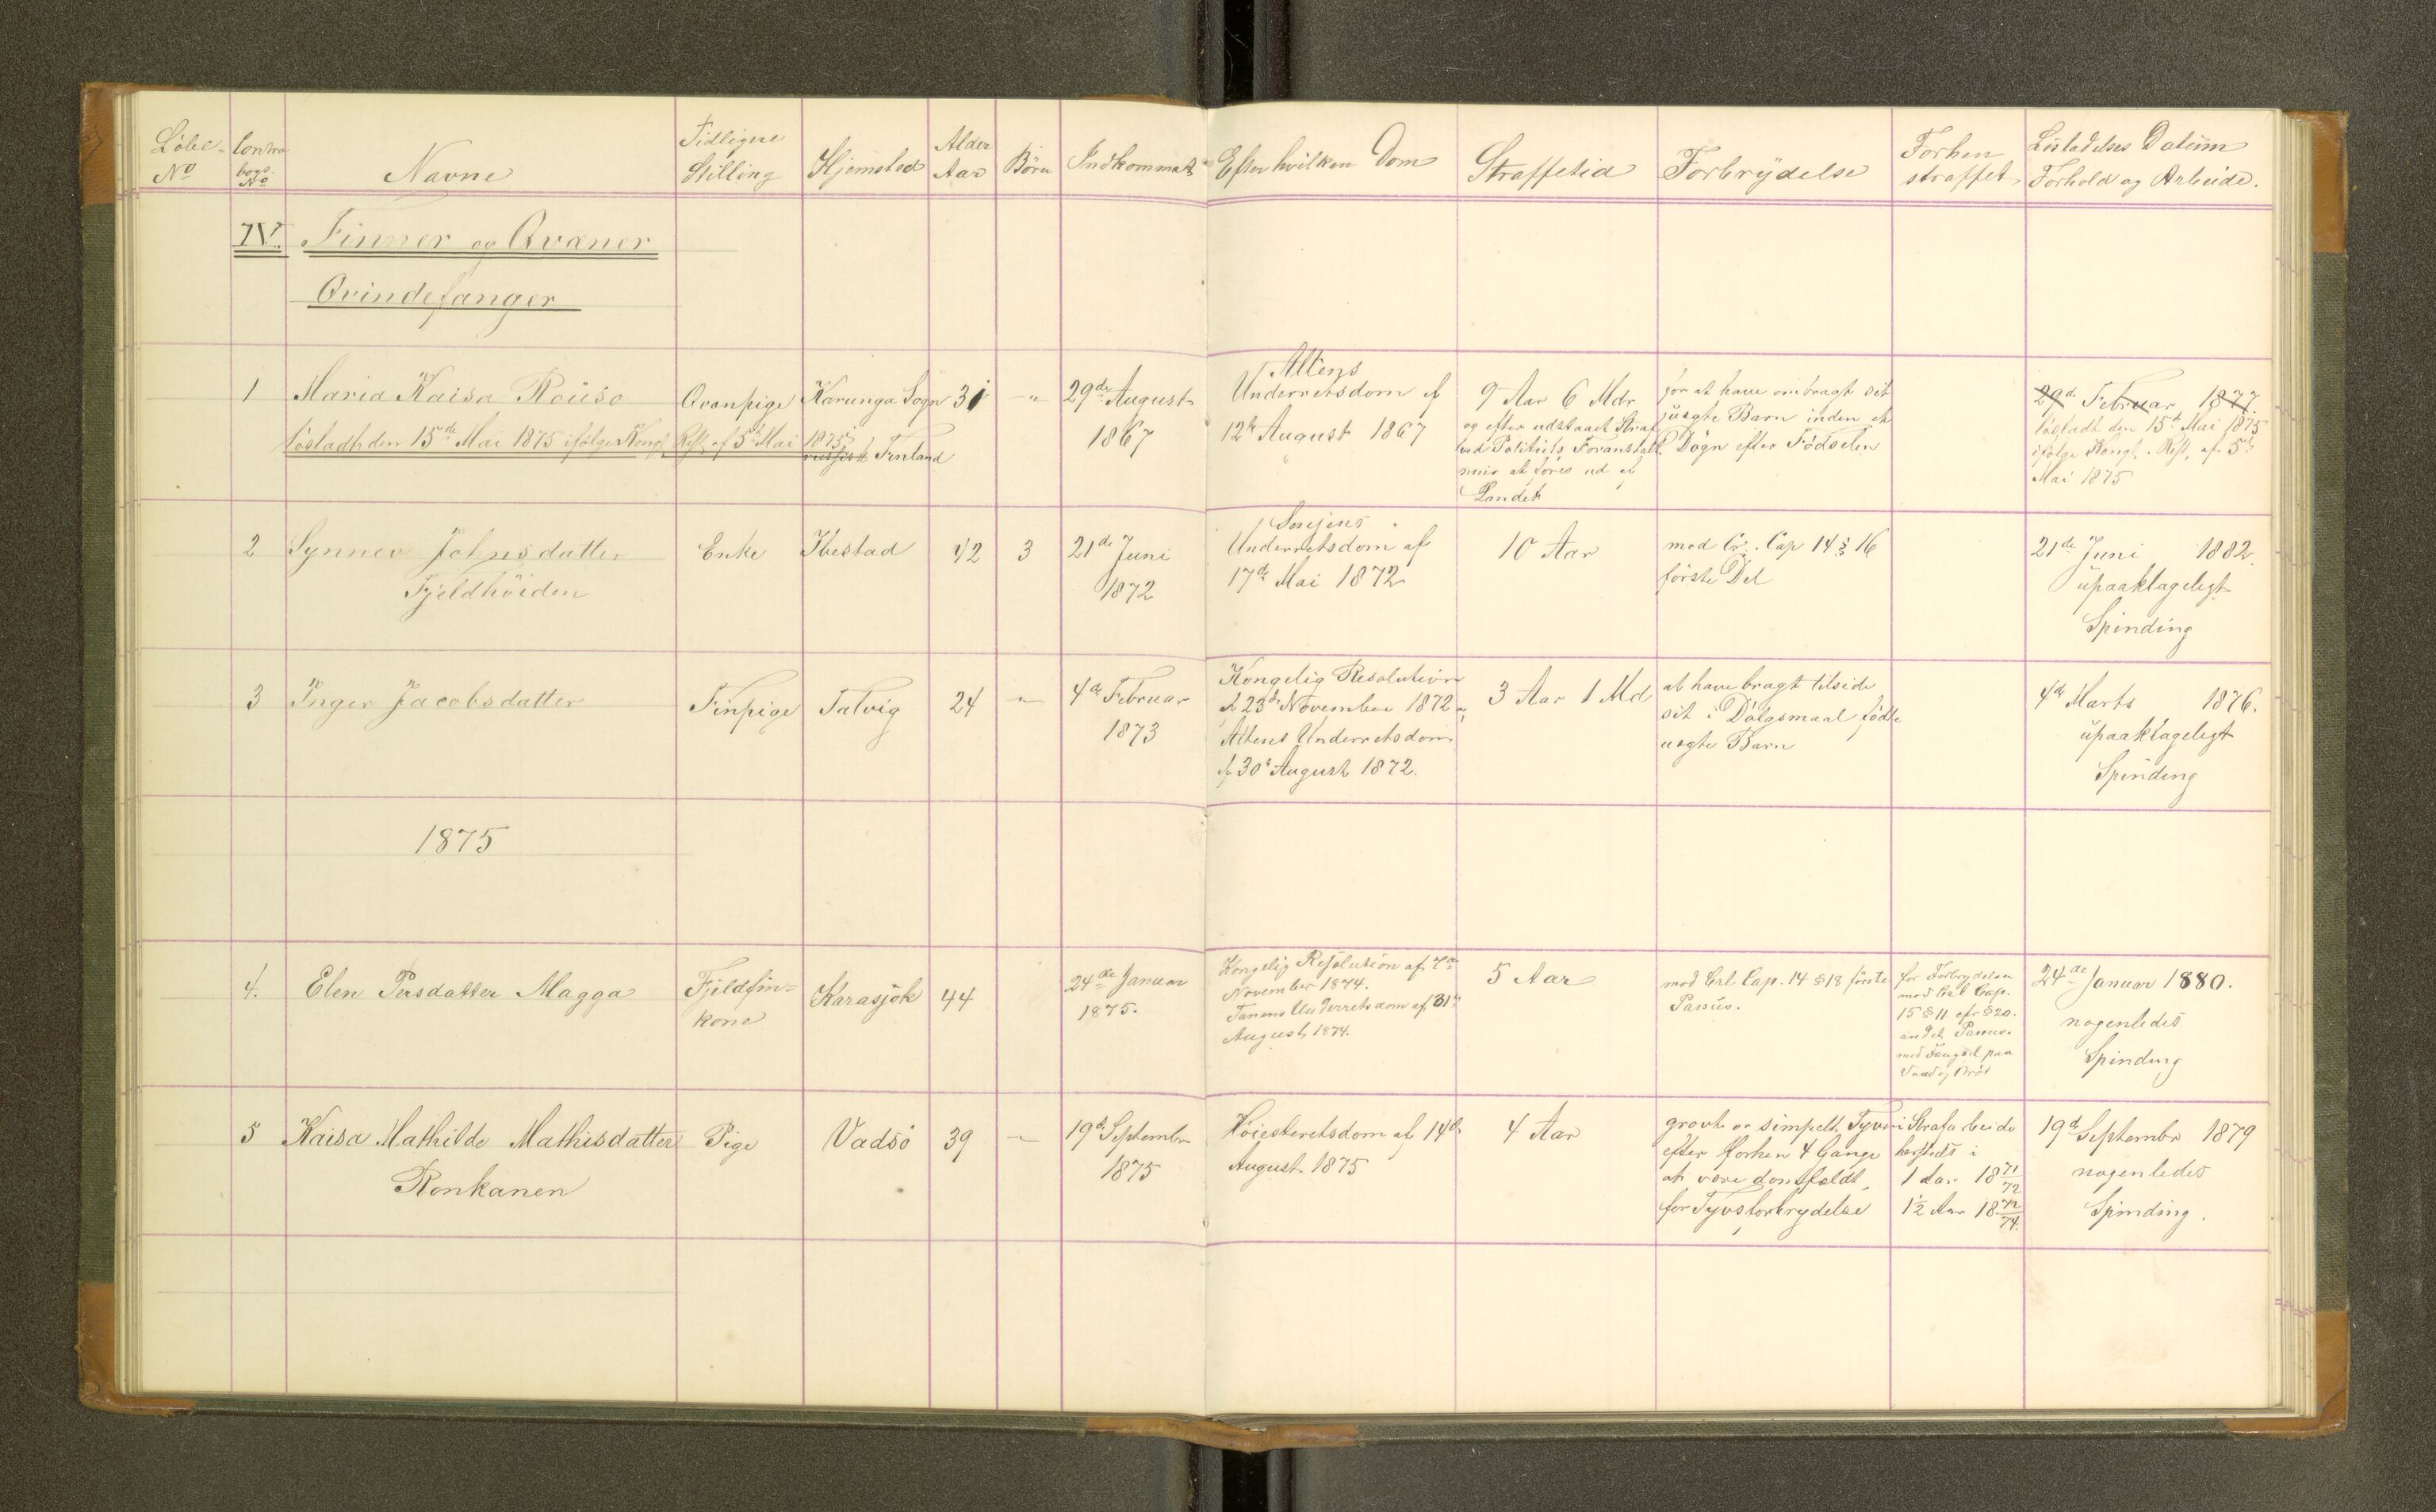 Løbe- Contra Tidligere Alder Forhen Løsladelses Datum
No bogs. No Navne Stilling Hjemsted Aar Børn Indkommet Efter hvilken Dom Straffetid Forbrydelse straffet Forhold og Arbeide.
IV. Finner og Qvæner
Qvindefanger
1 Maria Kaisa Rouso Qvænpige Karunga Sogn 31 -"-
løsladt den 15de Mai 1875 ifølge Kongl. Resl. af 5te Mai 1875
russisk Finland
29de August
1867
Altens
Underretsdom af
12te August 1867
9 Aar 6 Mdr
og efter udstaaet Straf
ved Politiets Foranstalt-
ning at føres ud af
Landet
for at have ombragt sit
uægte Barn inden et
Døgn efter Fødselen
29de Februar 1877.
løsladt den 15de Mai 1875
ifølge Kongl. Resl. af 5te
Mai 1875
2 Synnev Johnsdatter Enke Ibestad 42 3
Fjeldhøiden
21de Juni
1872
Senjens
Underretsdom af
17de Mai 1872
10 Aar
mod Cr. Cap 14 § 16
første Del
21de Juni 1882.
upaaklageligt
Spinding
3 Inger Jacobsdatter Finpige Talvig 24 -"-
4de Februar
1873
Kongelig Resolution
af 23de November 1872 og
Altens Underretsdom
af 30te August 1872.
3 Aar 1 Md
at have bragt tilside
sit i Dølgsmaal fødte
uægte Barn
4de Marts 1876.
upaaklageligt
Spinding
1875
4. Elen Persdatter Magga Fjeldfin-
kone
Karasjok 44
24de Januar
1875.
Kongelig Resolution af 7de
November 1874.
Tanens Underretsdom af 31te
August 1874.
5 Aar
mod Crl Cap. 14 § 18 første
Passus.
for Forbrydelse
mod Crl Cap.
15 § 11 cfr § 20.
andet Passus.
med Fængsel paa
Vand og Brød
24de Januar 1880.
nogenledes
Spinding
5 Kaisa Mathilde Mathisdatter Pige Vadsø 39 -"-
Ronkanen
19de September
1875
Høiesteretsdom af 14de
August 1875
4 Aar
grovt og simpelt Tyveri
efter forhen 4 Gange
at være domfældt
for Tyvsforbrydelse
Strafarbeide
hersteds i
1 Aar 1871/72
1½ Aar 1872/74.
19de September 1879
nogenledes
Spinding.